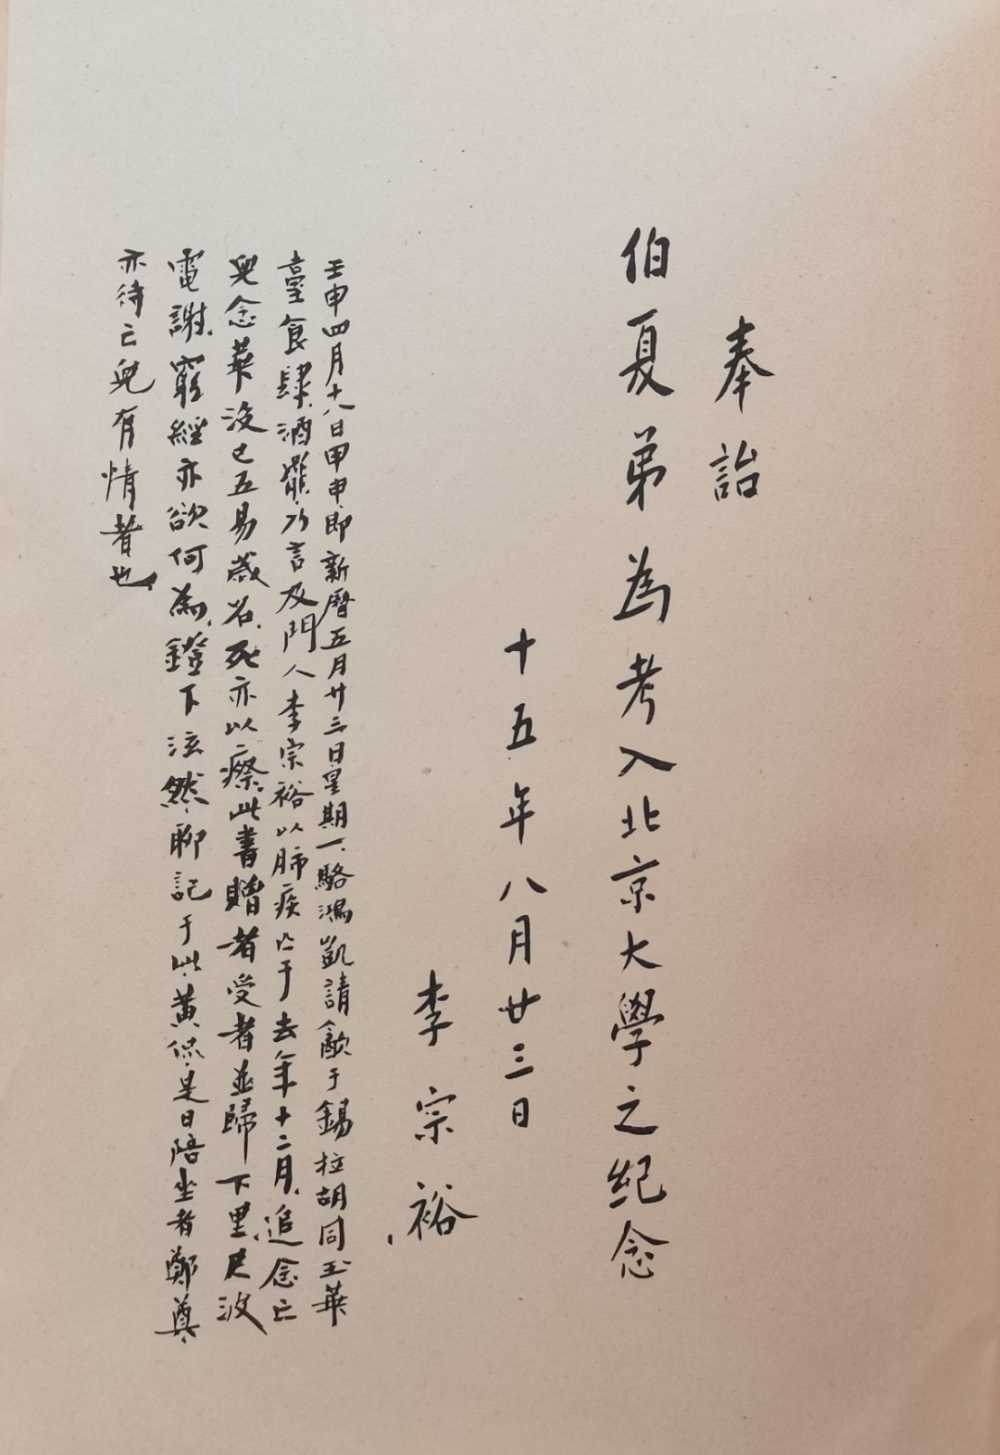 奉詒
伯夏弟為考入北京大學之紀念
十五年八月廿三日
李宗裕
壬申四月十八日甲申即新曆五月廿三日星期一駱鴻凱請飲于錫拉胡同玉華
臺食肆酒罷乃言及門人李宗裕以肺疾亡于去年十二月追念亡
兒念華沒已五易歲名死亦以瘵此書贈者受者並歸下里尺波
電謝窮經亦欲何為鐙下泫然聊記于此黃侃是日陪坐者鄭奠
亦待亡兒有情者也